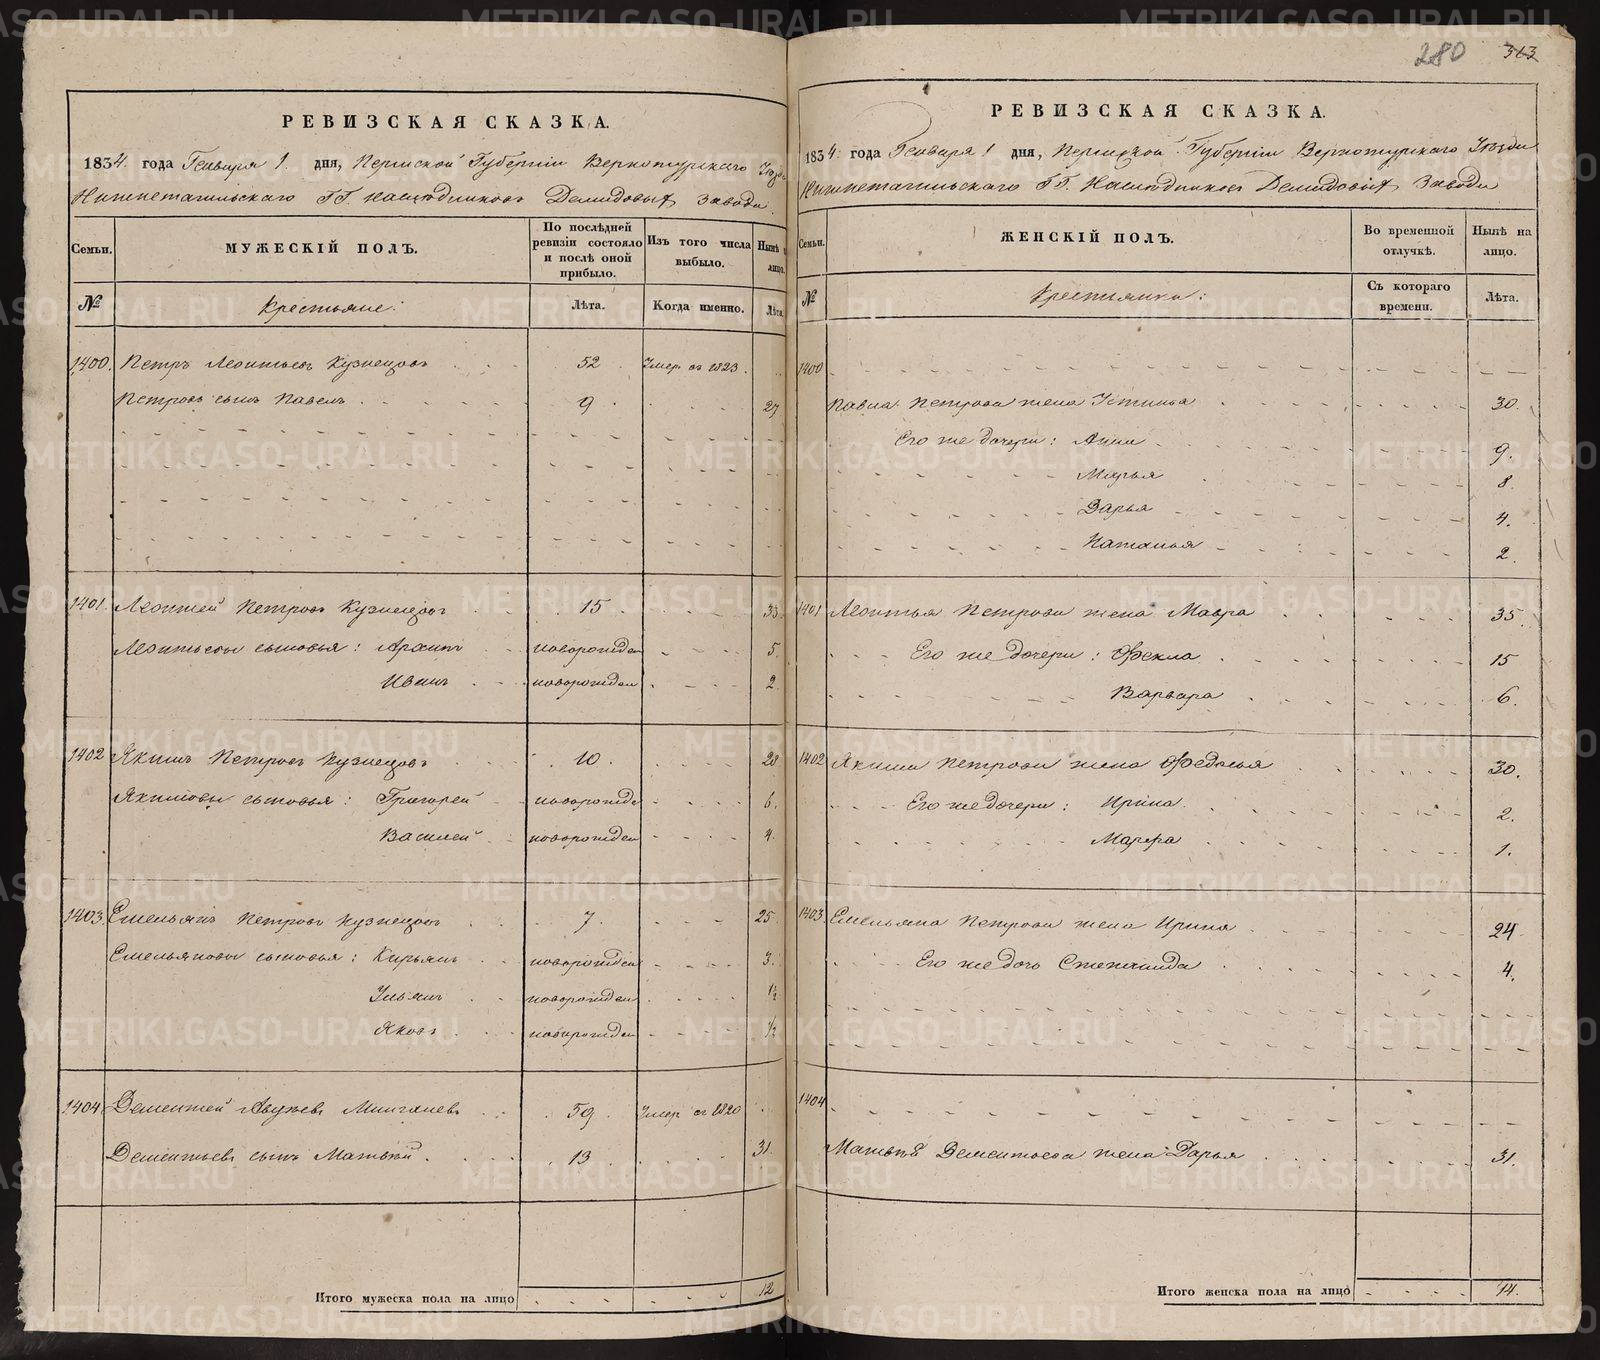 280 313
РЕВИЗСКАЯ СКАЗКА.
1834 года Генваря 1 дня, Пермской Губернiи Верхотурскаго Уѣзда
Нижнетагильскаго ГГ. Наслѣдниковъ Демидовыхъ завода
Семьи. МУЖЕСКIЙ ПОЛЪ. По послѣдней ревизiи состояло и послѣ оной прибыло. Изъ того числа выбыло. Нынѣ на лицо.
№ Крестьяне: Лѣта. Когда именно. Лѣта.
1400. Петръ Леонтьевъ Кузнецовъ 52 Умер. въ 1823.
Петровъ сынъ Павелъ 9 27
1401. Леонтей Петровъ Кузнецовъ 15 33
Леонтьевы сыновья: Архипъ новорожден 5.
Иванъ новорожден 2
1402 Якимъ Петровъ Кузнецовъ 10. 28
Якимовы сыновья: Григорей новорожде 6.
Василей новорожден 4.
1403. Емельянъ Петровъ Кузнецовъ 7 25
Емельяновы сыновья: Кирьянъ новорожден 3.
Ульянъ новорожден 1½
Яковъ новорожден ½
1404. Дементей Минганевъ 59 Умер. въ 1820
Дементьевъ сынъ Матвѣй 13 31.
Итого мужеска пола на лицо 12
РЕВИЗСКАЯ СКАЗКА.
1834 года Генваря 1 дня, Пермской Губернiи Верхотурскаго Уѣзда
Нижнетагильскаго ГГ. Наслѣдниковъ Демидовыхъ завода
Семьи. ЖЕНСКIЙ ПОЛЪ. Во временной отлучкѣ. Нынѣ на лицо.
№ Крестьянка: Съ котораго времени. Лѣта.
1400
Павла Петрова жена Устинья 30.
Его же дочери: Анна 9.
Марья 8.
Дарья 4.
Наталья 2.
1401 Леонтья Петрова жена Мавра 35.
Его же дочери: Фекла 15
Варвара 6.
1402 Якима Петрова жена Федосья 30.
Его же дочери: Ирина 2.
Марфа 1.
1403 Емельяна Петрова жена Ирина 24
Его же дочь Степанида 4.
1404
Матвѣя Дементьева жена Дарья 31.
Итого женска пола на лицо 14.
METRIKI.GASO-URAL.RU